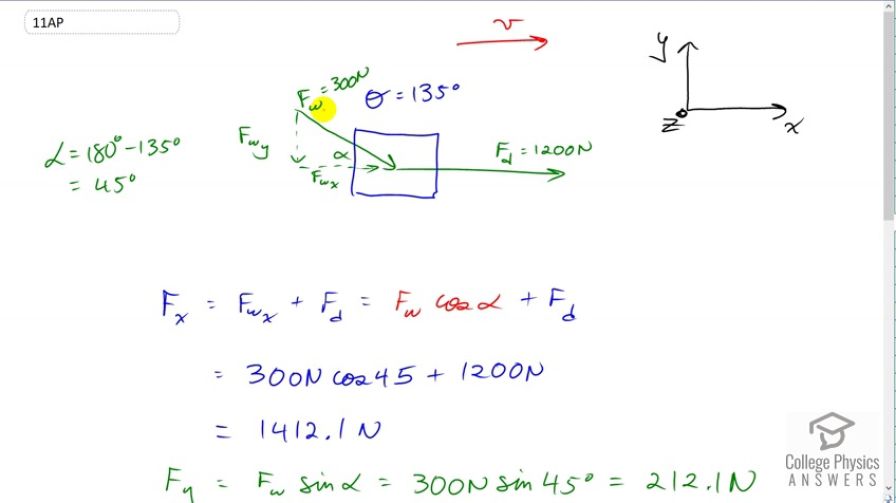 11AP
v
y
F_w = 300N
θ = 135°
F_wy
α = 180° - 135°
= 45°
α
F_wx
F_d = 1200N
z
x
F_x = F_wx + F_d = F_w cos α + F_d
= 300N cos 45 + 1200N
= 1412.1 N
F_y = F_w sin α = 300N sin 45° = 212.1 N
College Physics
ANSWERS